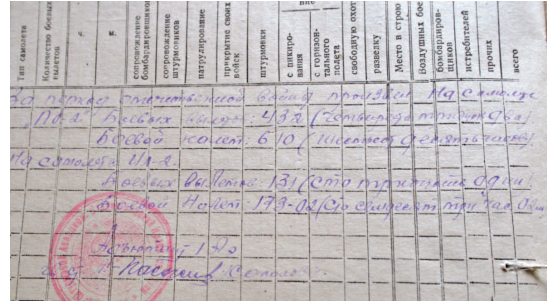 ние
Тип самолета
Количество боевых вылетов
сопровождение бомбардировщиков
сопровождение штурмовиков
патрулирование
прикрытие своих войск
штурмовки
с пикирования
с горизонтального полета
свободную охот
разведку
Место в строю
Воздушных бое
бомбардировщиков
истребителей
прочих
всего
За период отечественной войны произвел: На самолете
По-2. Боевых вылетов: 432 (Четыреста тридцать два)
Боевой налет: 610 (шестьсот десять часов)
На самолете Ил-2.
Боевых Вылетов: 131 (Сто тридцать один)
Боевой Налет: 173-02 (Сто семьдесят три час. 02
Адъютант 1